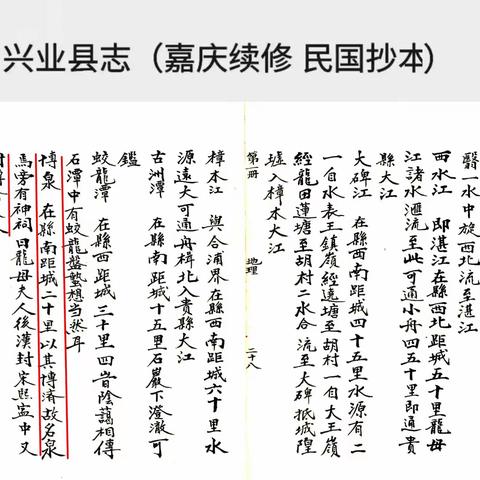 兴业县志（嘉庆续修 民国抄本）
醫一水中旋西北流至湛江
西水江 即湛江在縣西北距城五十里龍母
江諸水滙流至此可通小舟四五十里即通貴
縣大江
大碑江 在縣西南距城四十五里水源有二
一自水表王鎮嶺經遶塘至胡村一自大王嶺
經龍田蓮塘至胡村二水合流至大碑抵城隍
墟入樟木大江
第一册 地理 二十八
樟木江 與合浦界在縣西南距城六十里水
源遠大可通舟楫北入貴縣大江
古洲潭 在縣南距城十五里石巖下澄澈可
鑑
蛟龍潭 在縣西距城三十里四旹陰藹相傳
石潭中有蛟龍盤蟄想當然耳
博泉 在縣南距城二十里以其博濟故名泉
馬旁有神祠曰龍母夫人後漢封宋熙寍中又